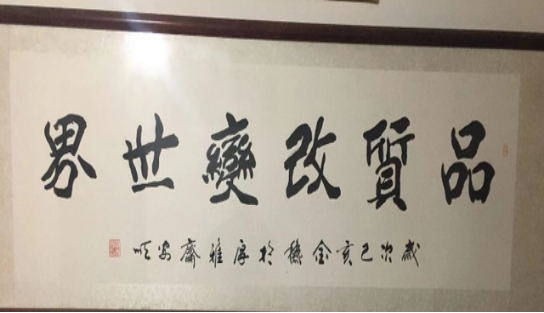 品質改變世界
歲次己亥金穗於厚雅齋安順